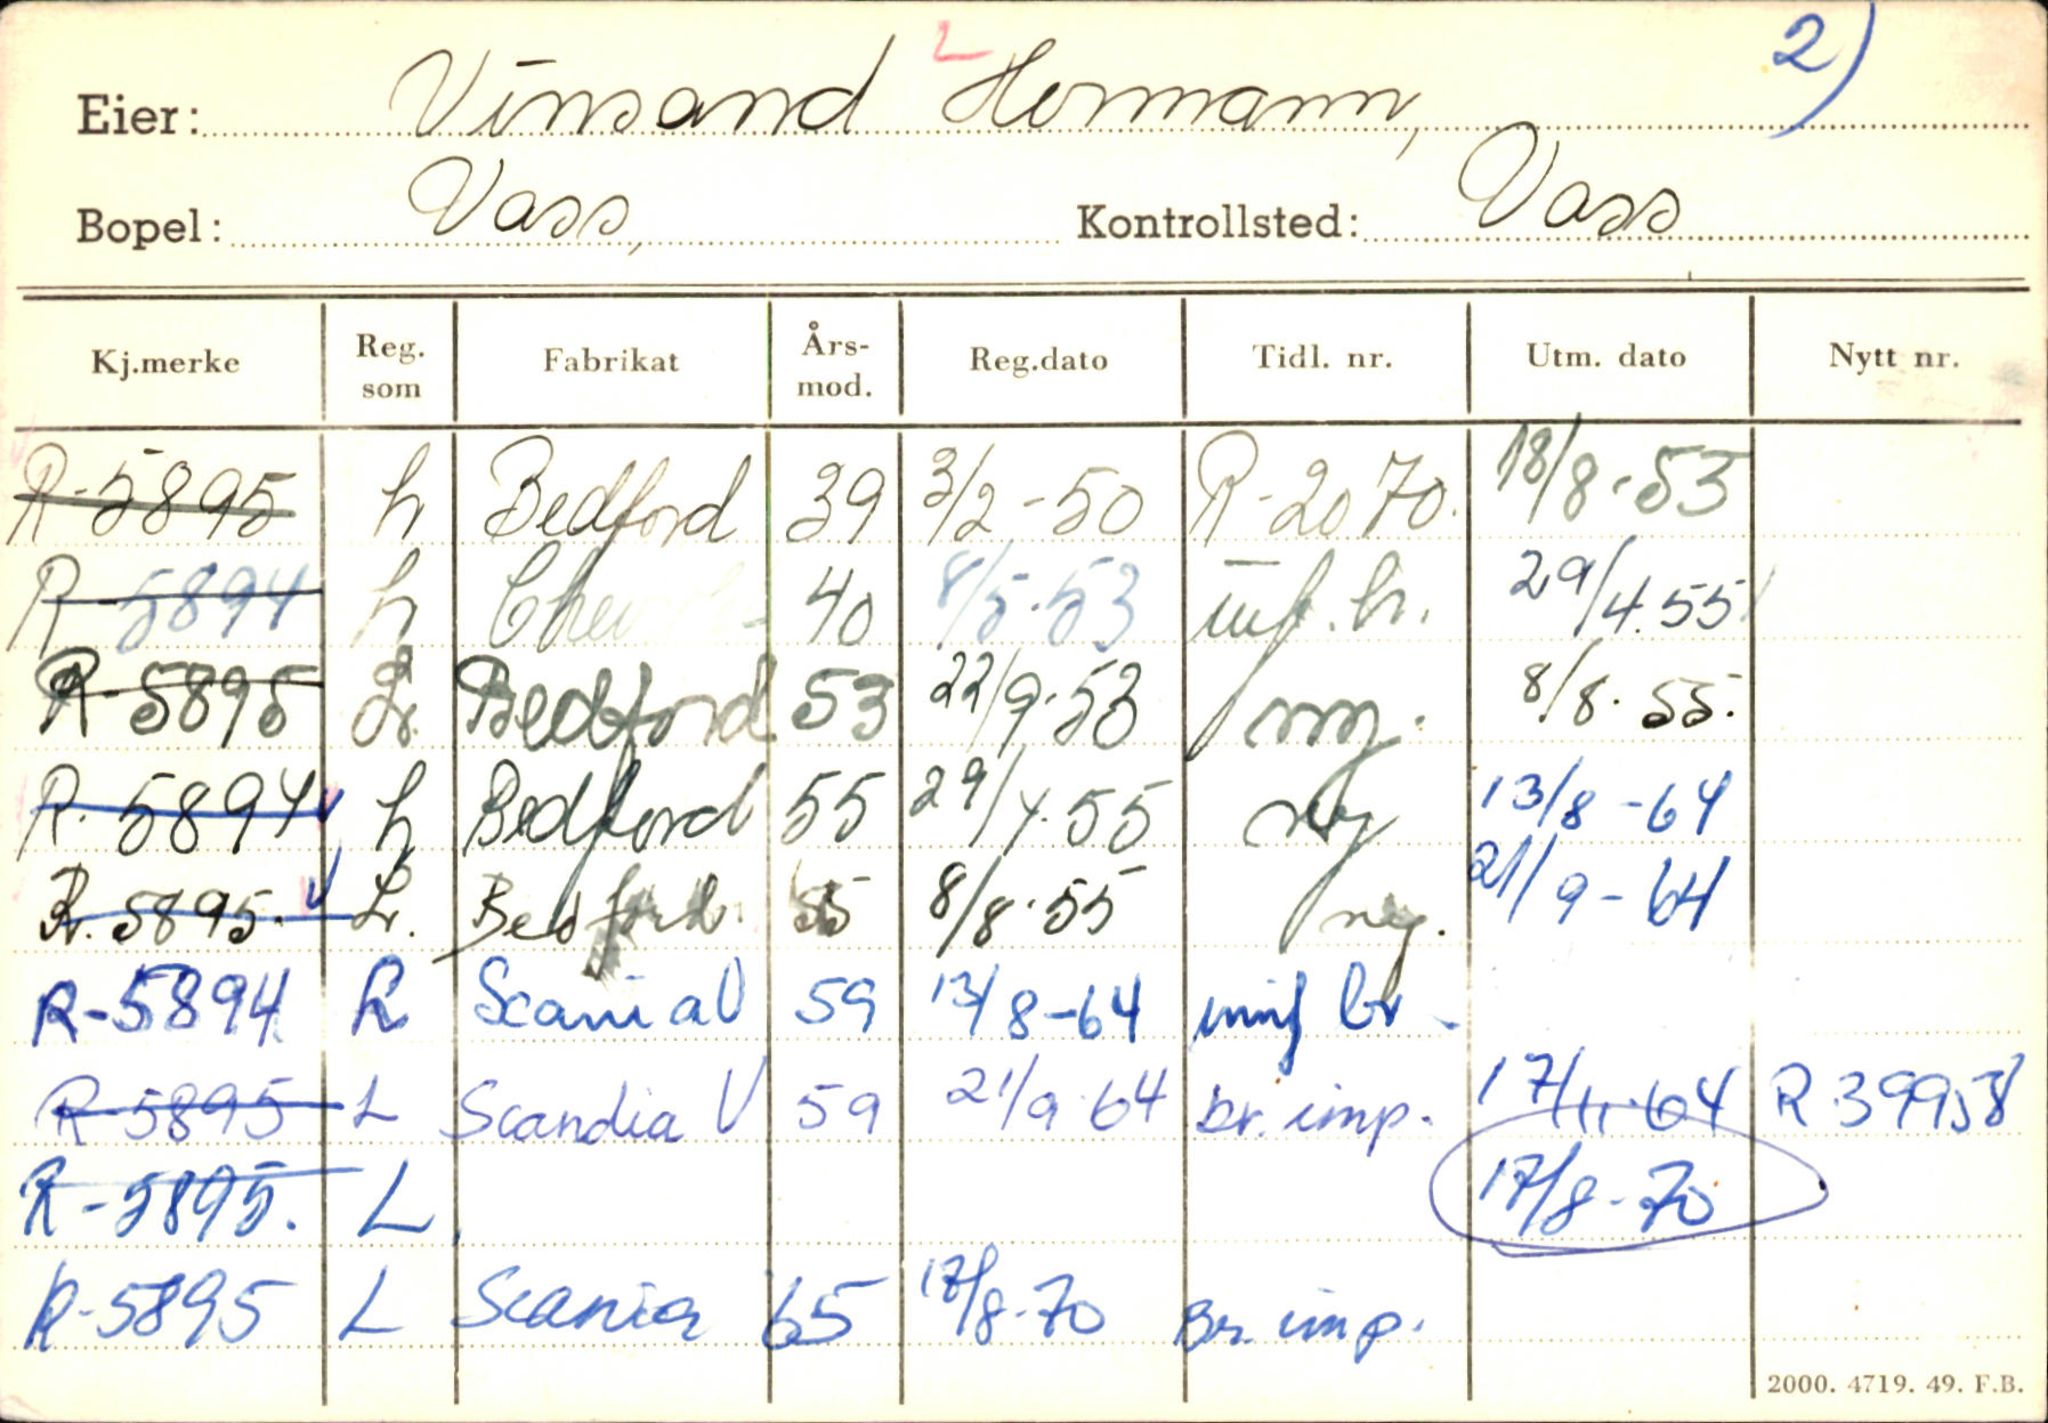 2)
Eier: Vinsand Hermann,
Bopel: Vass, Kontrollsted: Vass
Kj.merke Reg. som Fabrikat Års-mod. Reg.dato Tidl. nr. Utm. dato Nytt nr.
R-5895 L Bedford 39 3/2-50 R-2070. 18/8-53
R-5894 L 40 8/5-53 29/4.55
R-5895 L. Bedford 53 22/9-53 ny. 8/8.55.
R.5894 L Bedford 55 29/4.55 ny 13/8-64
R.5895. L. Bedford 55 8/8.55 ny. 21/9-64
R-5894 L Scania V 59 13/8-64 br.
R-5895 L Scandia V 59 21/9-64 br. imp. 17/11-64 R-39958
R-5895. L. 17/8-70
R-5895 L Scania 65 17/8-70 Br. imp.
2000. 4719. 49. F.B.